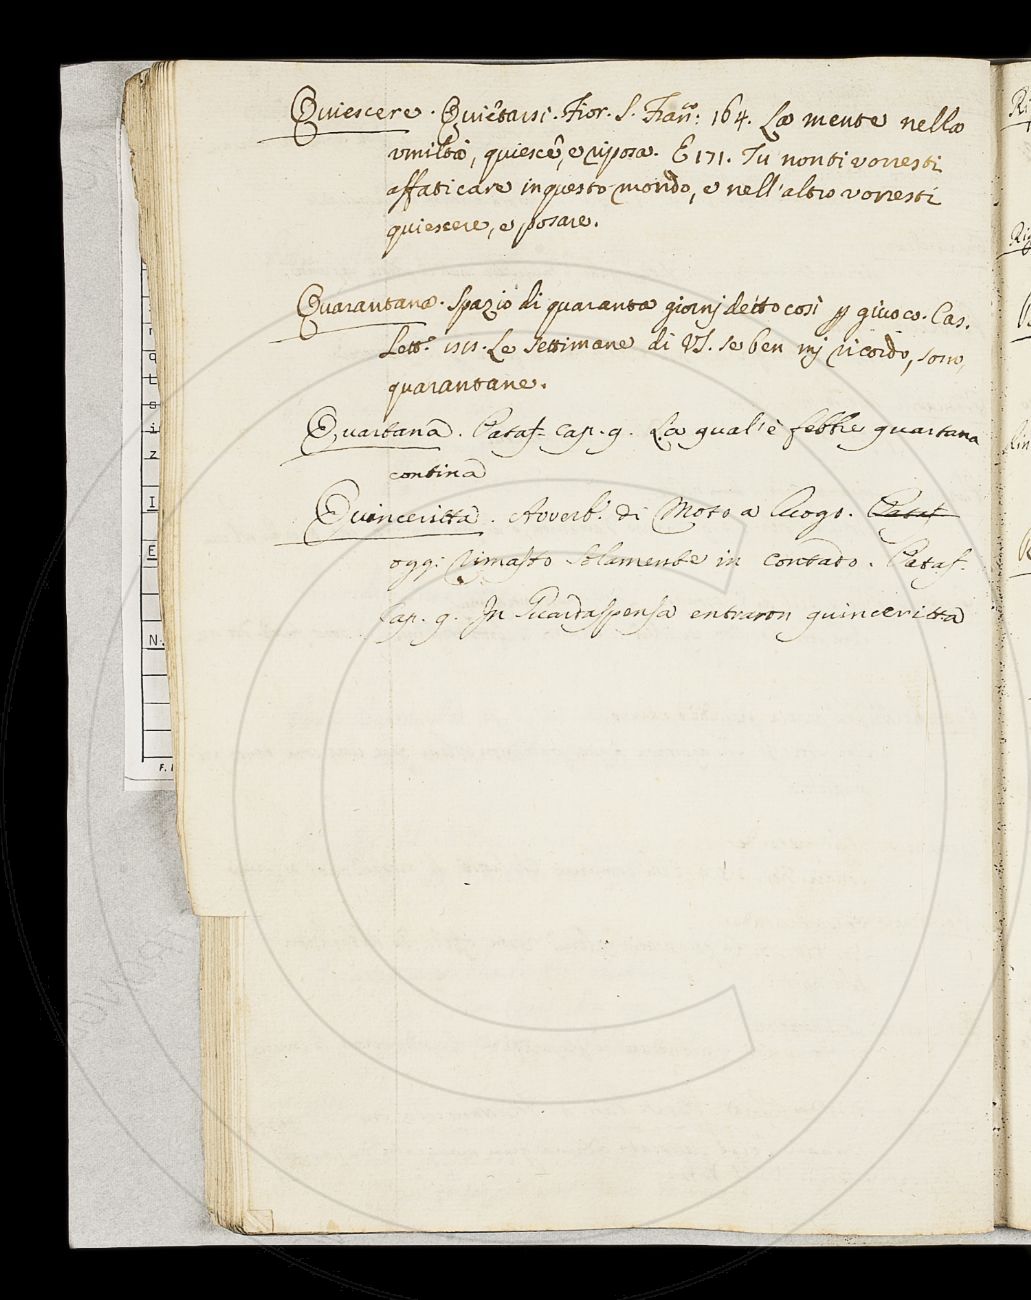 Quiescere. Quietarsi. Fior. S. Fran.co: 164. La mente nella
vmiltà, quiesce, e riposa. E 171. Tu non ti vorresti
affaticare in questo mondo, e nell'altro vorresti
quiescere, e posare.
Quarantana. Spazio di quaranta giorni detto così p giuoco. Cas.
Lett.e 1515. Le settimane di VS. se ben mi ricordo, sono
quarantane.
Quartana. Pataf. cap. 9. La qual'è febbre quartana
contina
Quinceritta. Avverb. di Moto a luogo. Pataf
oggi rimasto solamente in contado. Pataf.
Cap. 9. In Guardaspensa entraron quinceritta